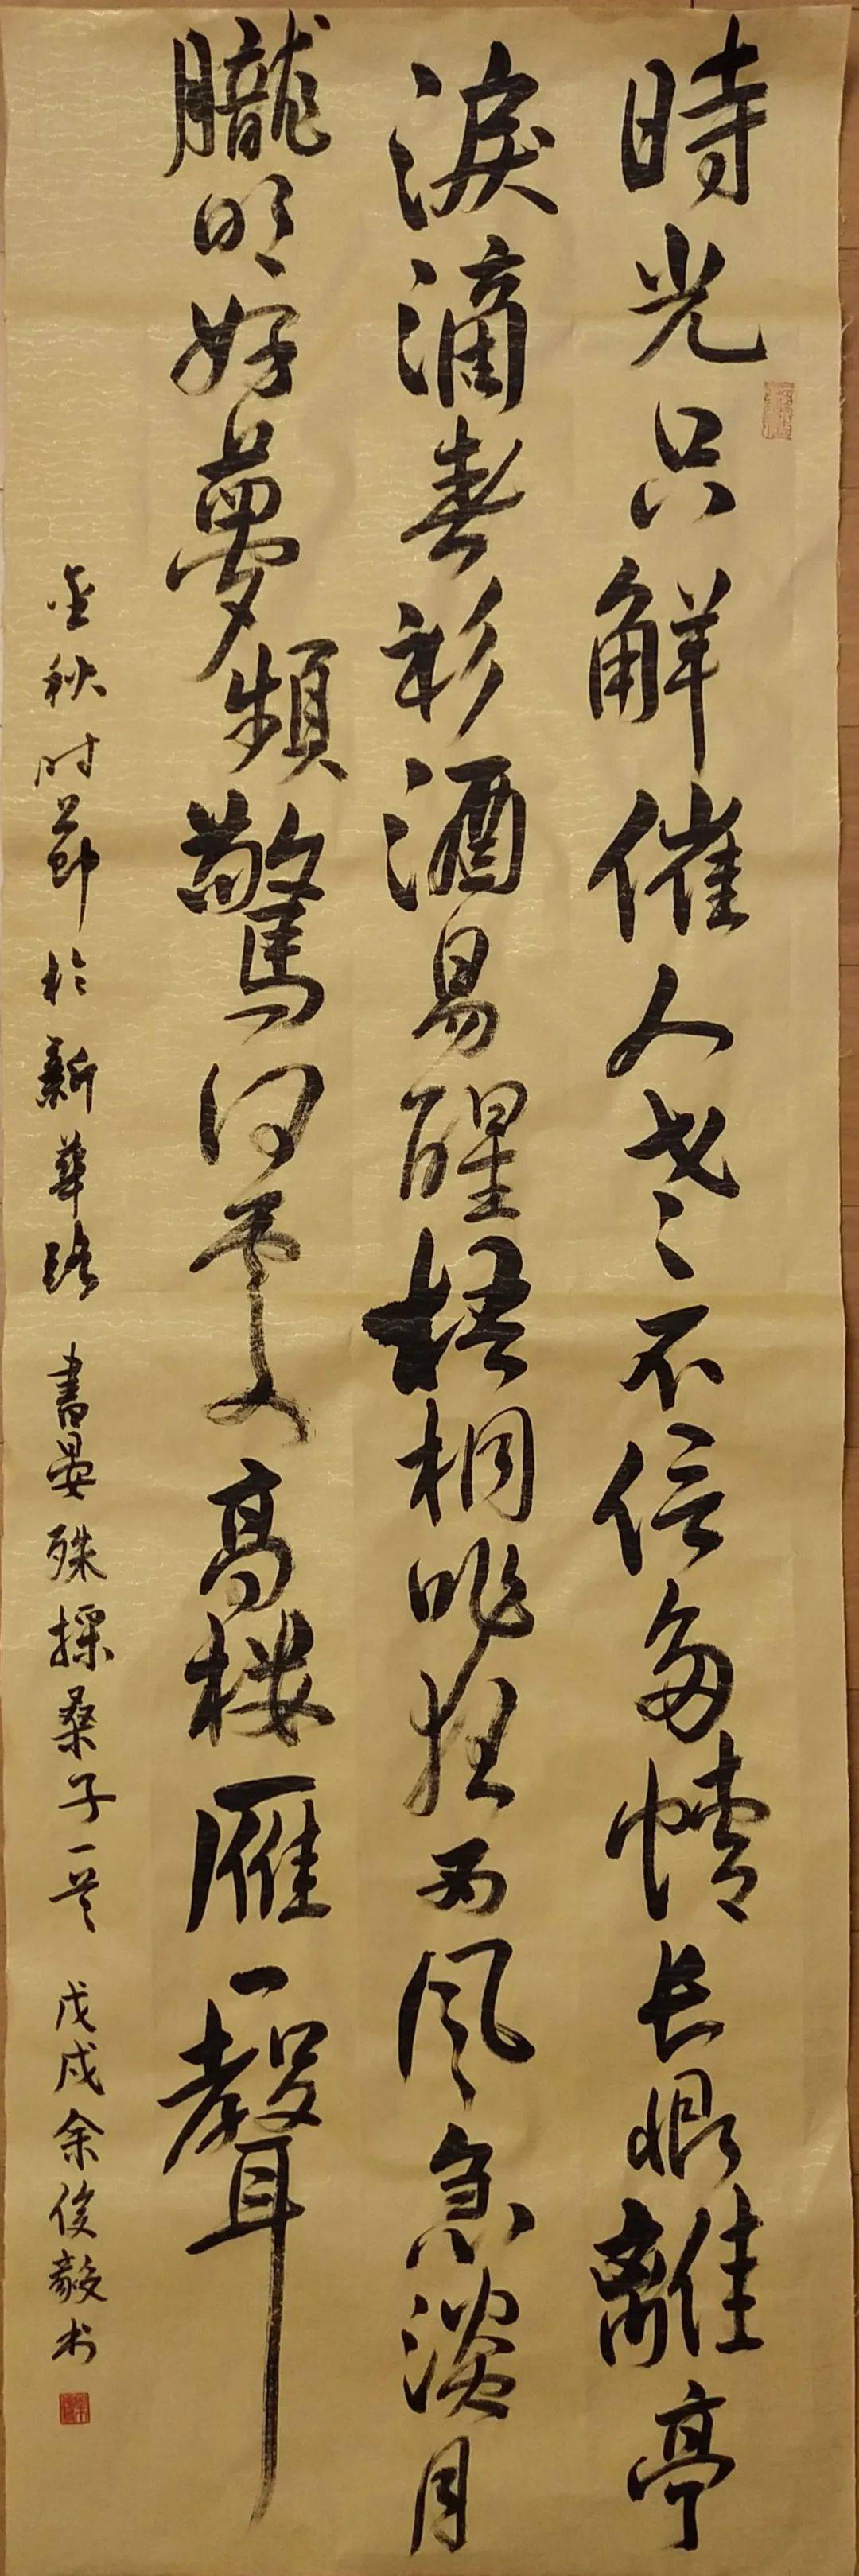 時光只解催人老不信多情長恨離亭
淚滴春衫酒易醒梧桐昨夜西風急淡月
朧明好夢頻驚何處高樓雁一聲
金秋时節於新華路書晏殊採桑子一首戊戌余俊毅书